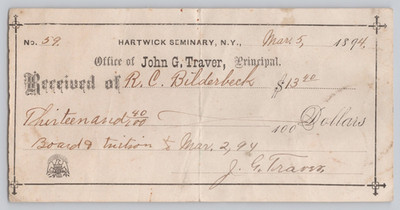 No. 59. HARTWICK SEMINARY, N.Y., Mar. 5, 1894.
Office of John G. Traver, Principal.
Received of R. C. Bilderbeck $13 40
Thirteen and 40/100 Dollars
100
Board & tuition to Mar. 2, 94
J. G. Traver